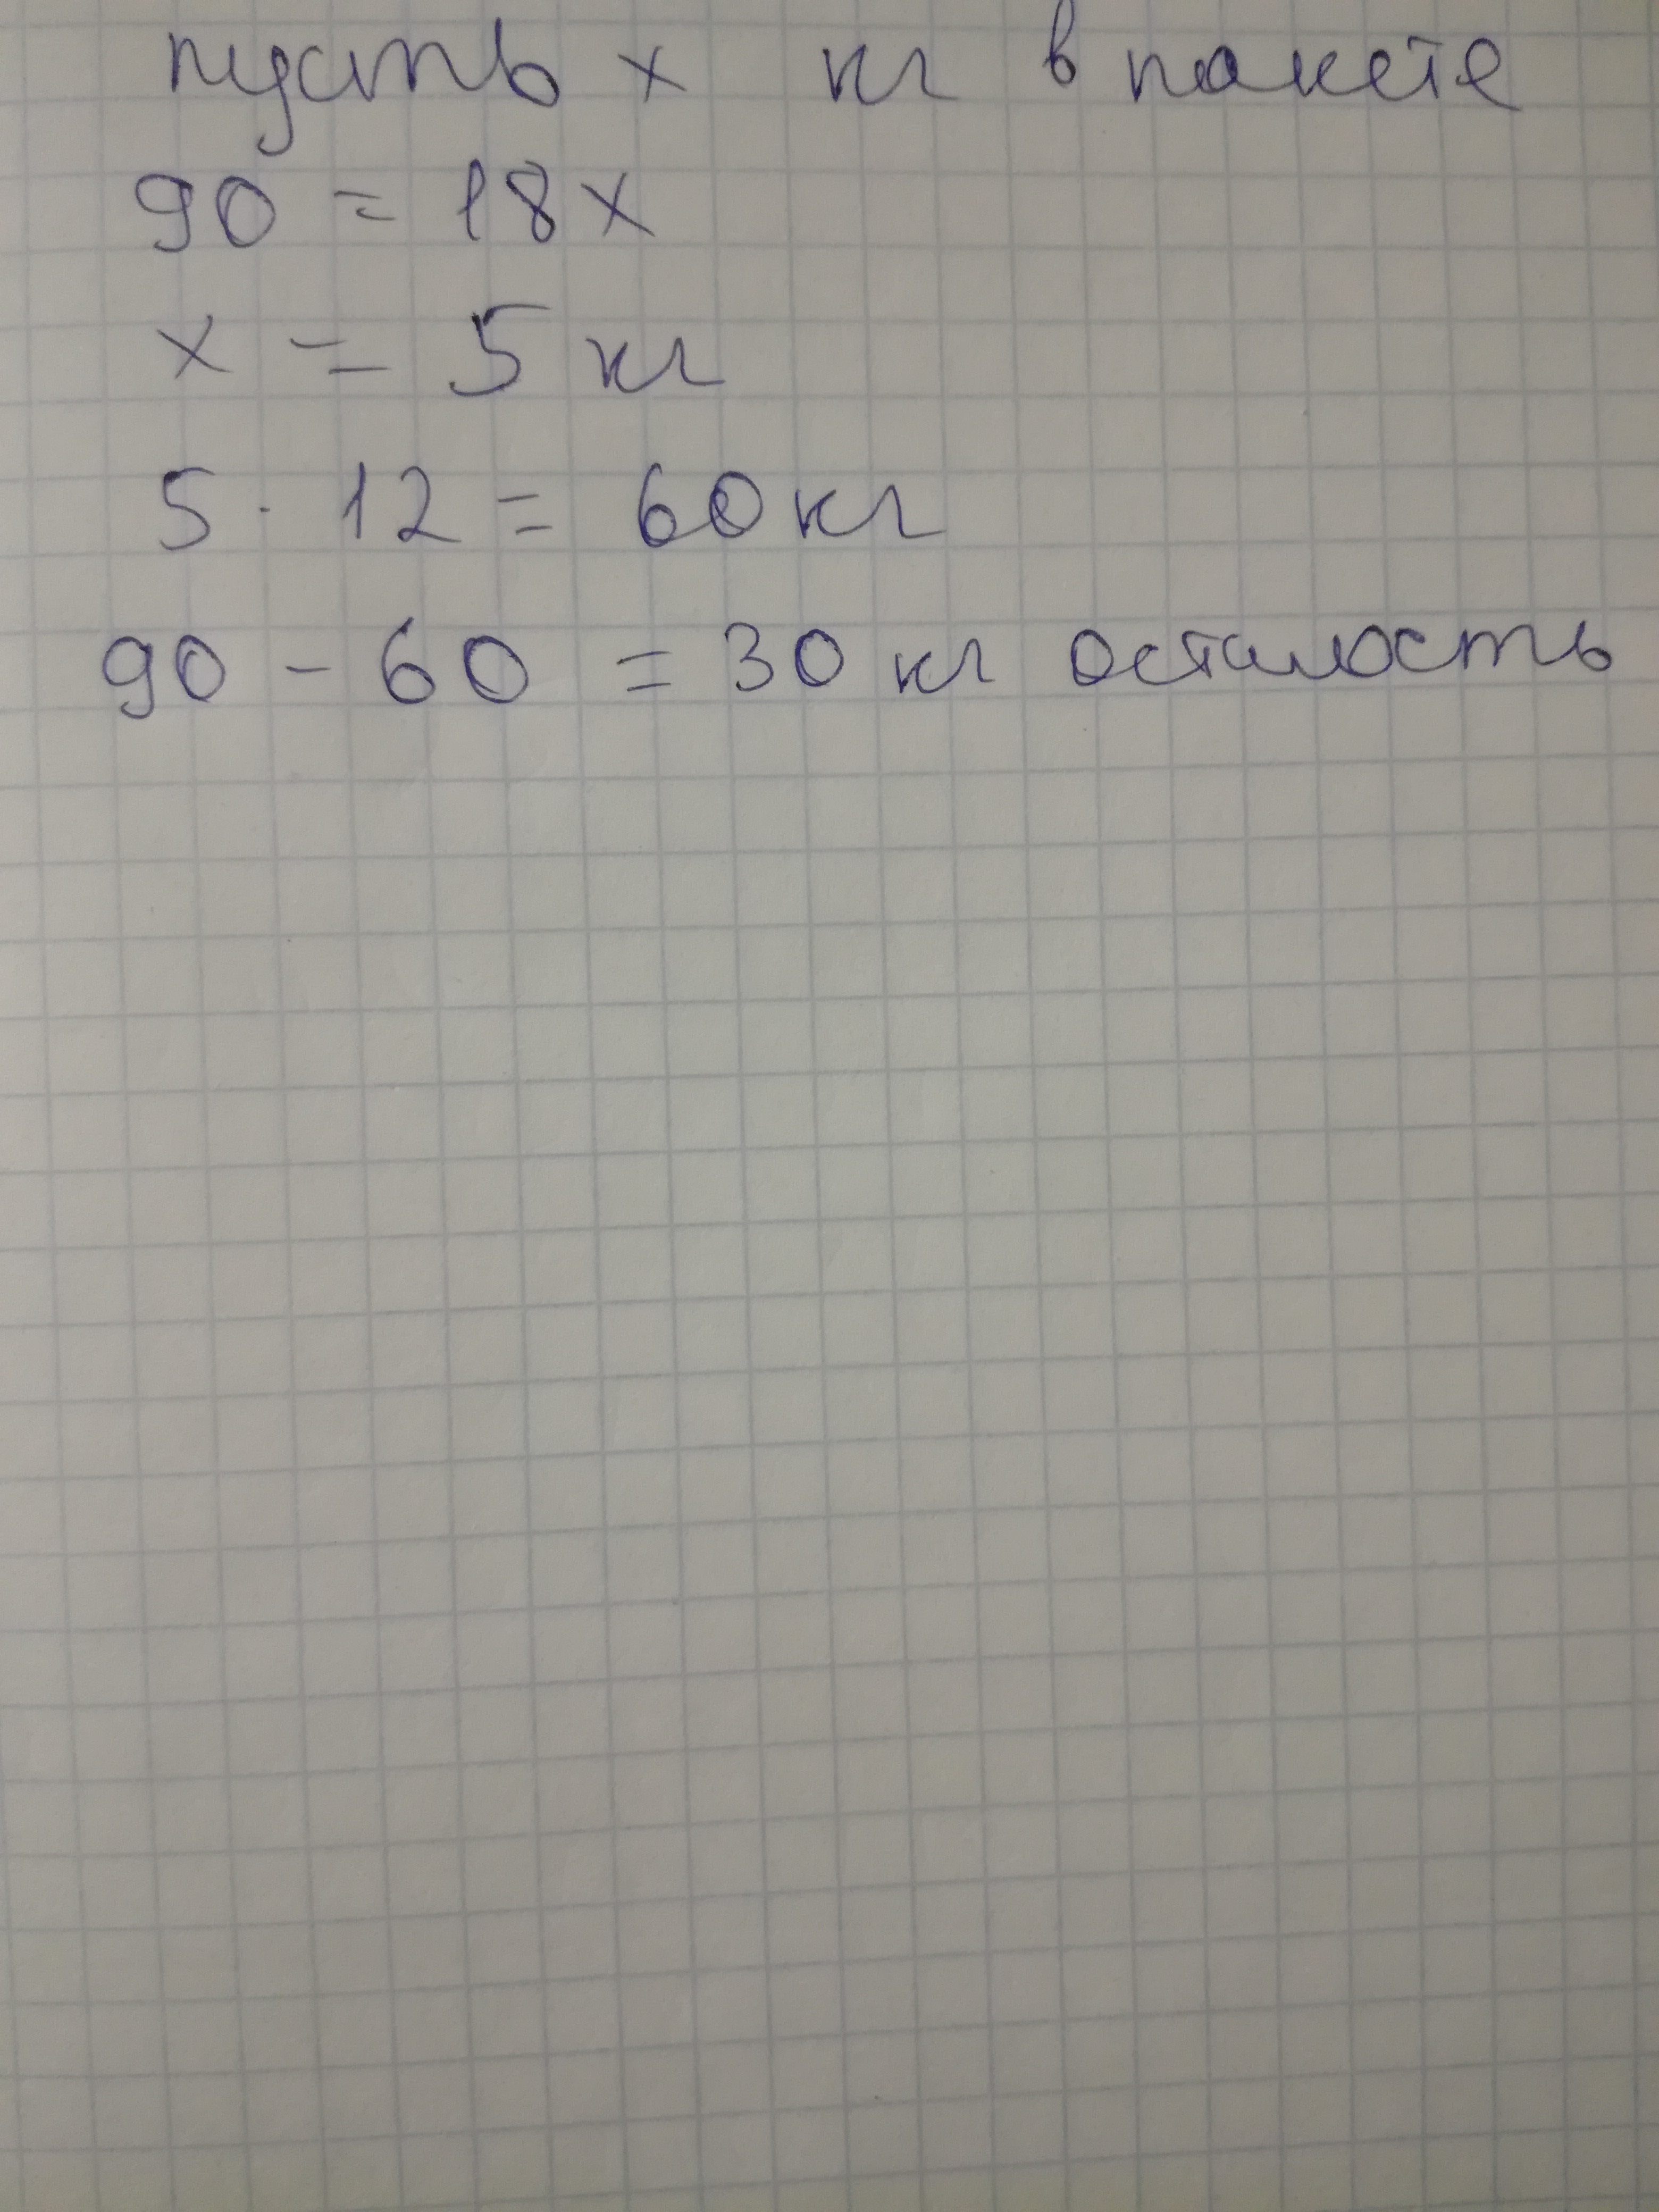 пусть x кг в пакете
90 = 18x
x = 5 кг
5 · 12 = 60 кг
90 - 60 = 30 кг осталость